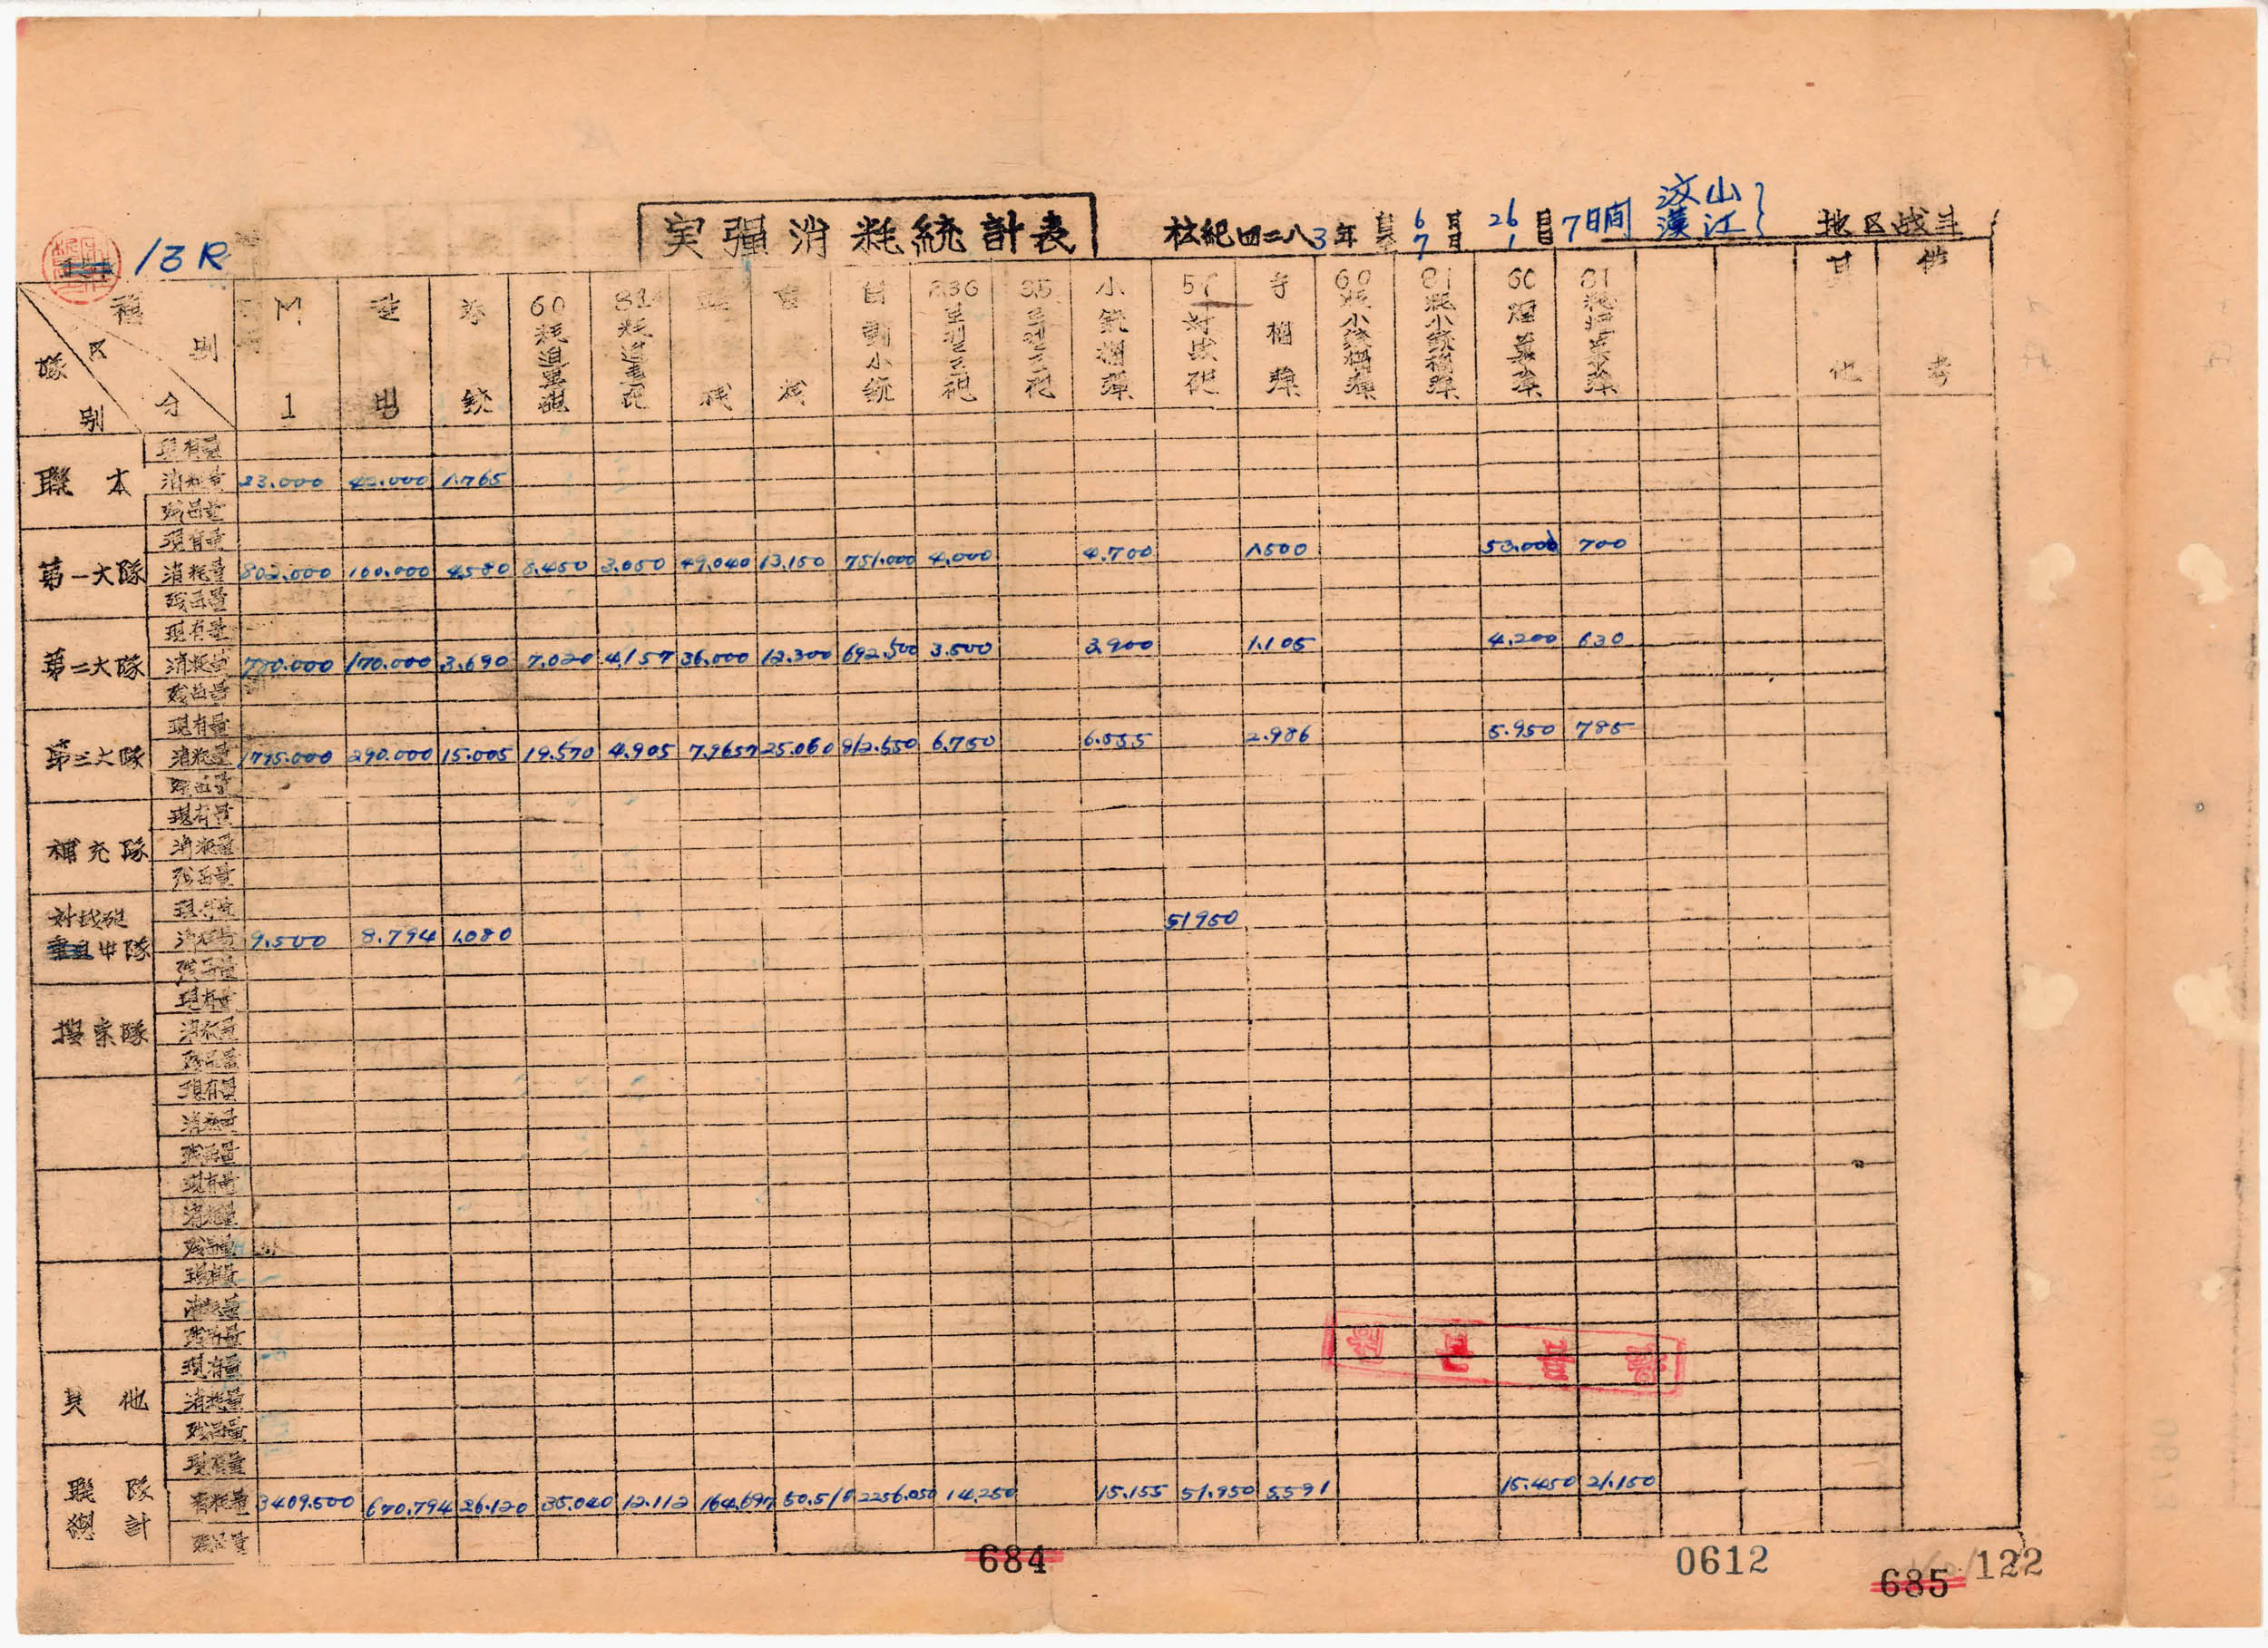 13R
実弾消耗統計表
檀紀四二八3年 自至 6月7月 26日1日 7日間 汶山 漢江 地区战斗
種別 区分 隊別
M1
拳銃
60耗迫撃砲
81耗迫撃砲
自動小銃
2.36
3.5
小銃榴彈
57対战砲
手榴彈
60耗小銃榴彈
81耗小銃榴彈
60煙幕彈
81耗煙幕彈
其他
備考
聯本
現有量
消耗量 23.000 42.000 1.765
残品量
第一大隊
現有量
消耗量 802.000 160.000 4.580 8.450 3.050 49.040 13.150 751.000 4.000 4.700 1.500 53.000 700
残品量
第二大隊
現有量
消耗量 780.000 170.000 3.690 7.020 4.157 36.000 12.300 692.500 3.500 3.900 1.105 4.200 630
残品量
第三大隊
現有量
消耗量 1795.000 290.000 15.005 19.570 4.905 7.9657 25.060 812.550 6.750 6.555 2.986 5.950 785
残品量
補充隊
現有量
消耗量
残品量
対战砲 中隊
現有量
消耗量 9.500 8.794 1.080 51950
残品量
搜索隊
現有量
消耗量
残品量
現有量
消耗量
残品量
現有量
消耗量
残品量
現有量
消耗量
残品量
其他
現有量
消耗量
残品量
聯隊總計
現有量
消耗量 3409.500 670.794 26.120 35.040 12.112 164.697 50.515 2256.050 14.250 15.155 51.950 5.591 15.450 21.150
残品量
684
0612
685
122